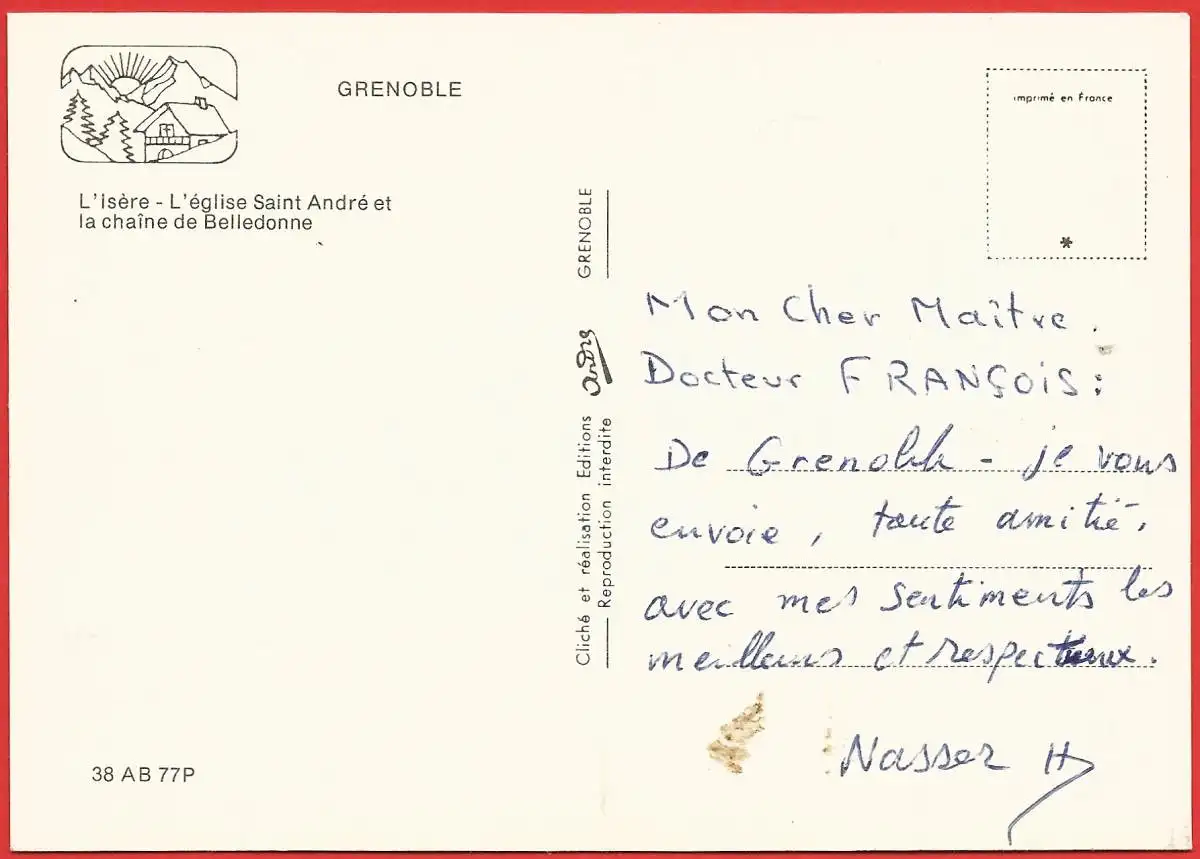 GRENOBLE
L'Isère - L'église Saint André et
la chaîne de Belledonne
38 AB 77P
Cliché et réalisation Editions André GRENOBLE
Reproduction interdite
imprimé en France
*
Mon Cher Maître.
Docteur FRANÇOIS:
De Grenoble - je vous
envoie, toute amitié,
avec mes sentiments les
meilleurs et respectueux.
Nasser H